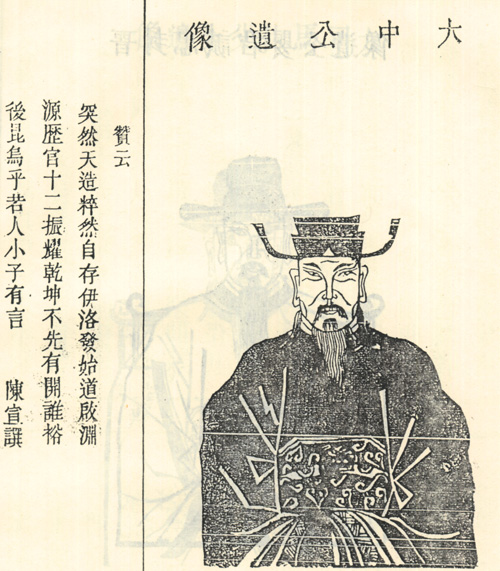 大中公遺像
贊云
突然天造粹然自存伊洛發始道啟淵
源歷官十二振耀乾坤不先有開誰裕
後昆烏乎若人小子有言 陳宣譔